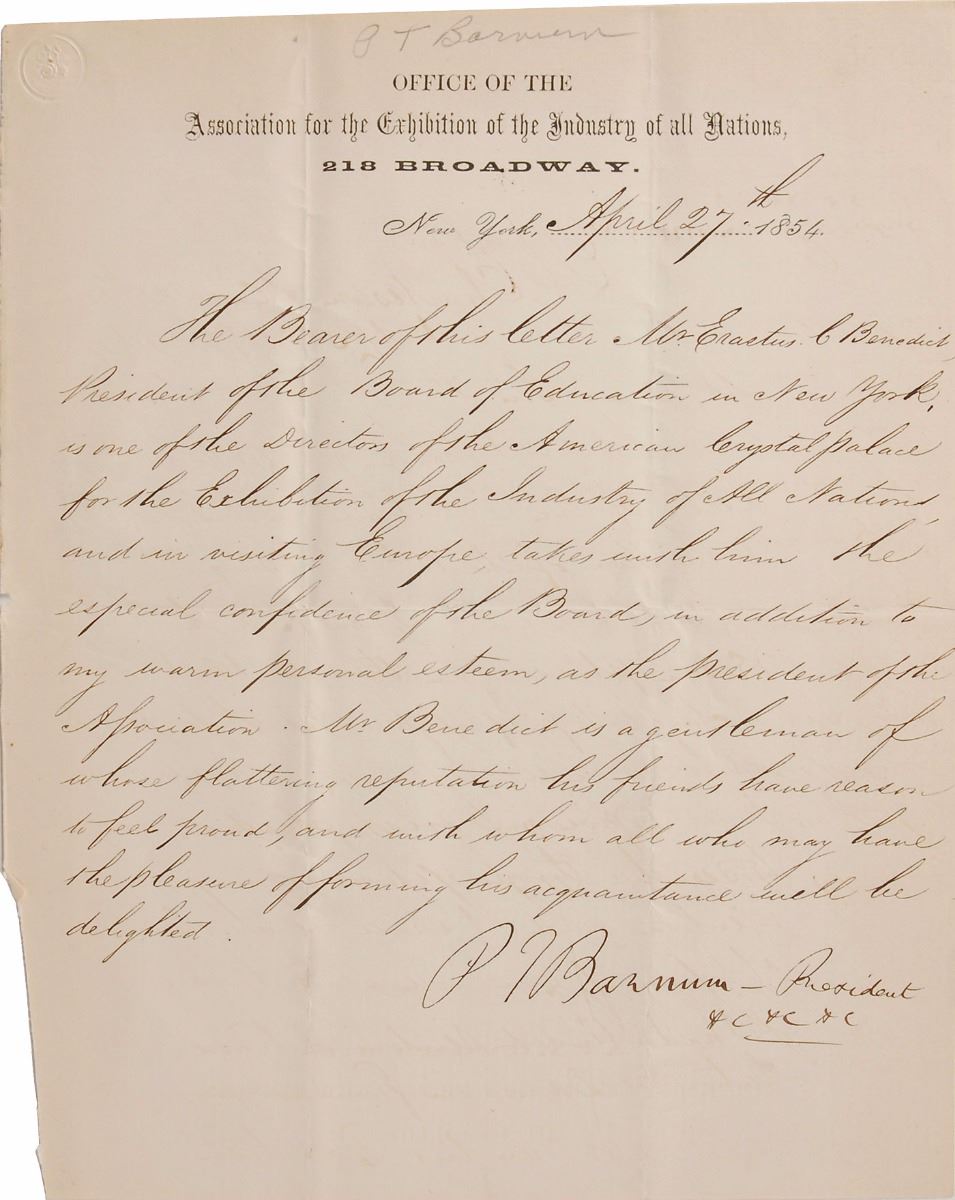 P T Barnum
OFFICE OF THE
Association for the Exhibition of the Industry of all Nations,
218 BROADWAY.
New York, April 27th 1854.
The Bearer of this letter Mr Erastus C Benedict,
President of the Board of Education in New York,
is one of the Directors of the American Crystal palace
for the Exhibition of the Industry of All Nations,
and in visiting Europe, takes with him the
especial confidence of the Board, in addition to
my warm personal esteem, as the president of the
Association. Mr Benedict is a gentleman of
whose flattering reputation his friends have reason
to feel proud, and with whom all who may have
the pleasure of forming his acquaintance will be
delighted.
P T Barnum – President
&c &c &c